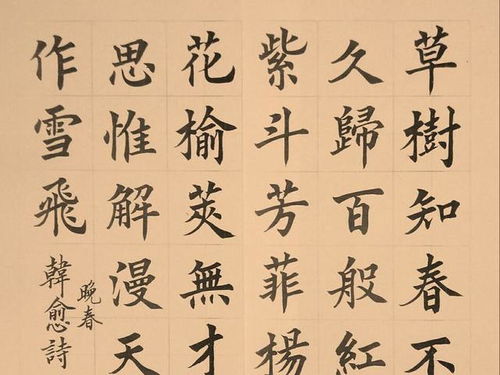 草樹知春不
久歸百般紅
紫斗芳菲楊
花榆莢無才
思惟解漫天
作雪飛
晚春
韓愈詩